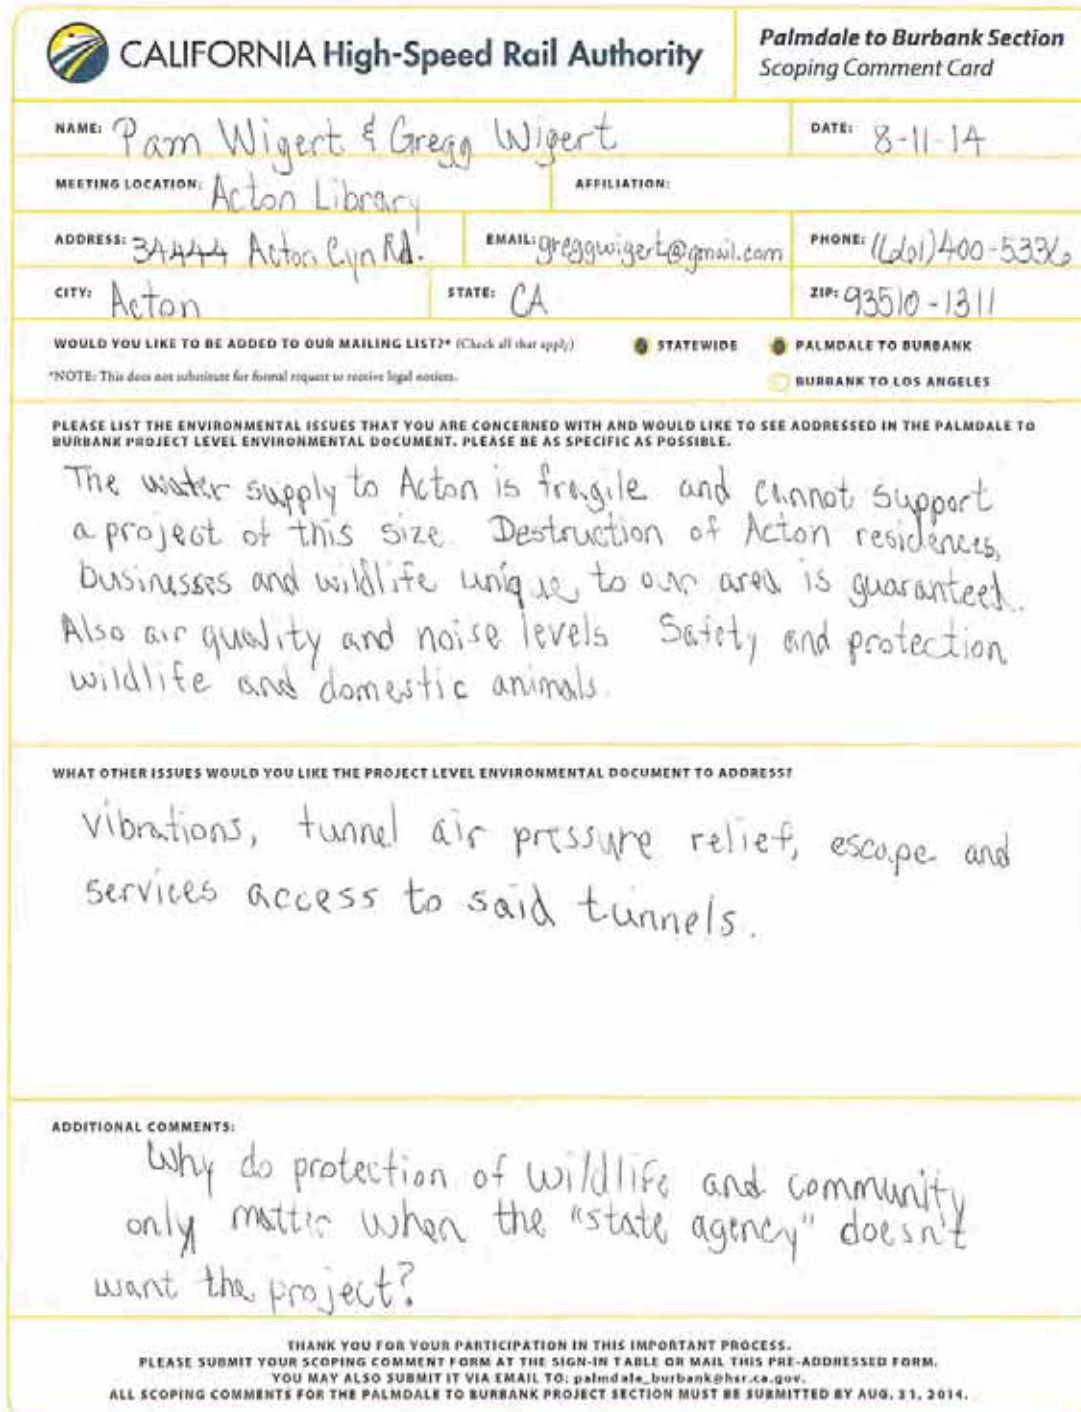 CALIFORNIA High-Speed Rail Authority
Palmdale to Burbank Section
Scoping Comment Card
NAME: Pam Wigert & Gregg Wigert
DATE: 8-11-14
MEETING LOCATION: Acton Library
AFFILIATION:
ADDRESS: 34444 Acton Cyn Rd.
EMAIL: greggwigert@gmail.com
PHONE: (661)400-5336
CITY: Acton
STATE: CA
ZIP: 93510-1311
WOULD YOU LIKE TO BE ADDED TO OUR MAILING LIST?* (Check all that apply)
STATEWIDE
PALMDALE TO BURBANK
*NOTE: This does not substitute for formal request to receive legal notices.
BURBANK TO LOS ANGELES
PLEASE LIST THE ENVIRONMENTAL ISSUES THAT YOU ARE CONCERNED WITH AND WOULD LIKE TO SEE ADDRESSED IN THE PALMDALE TO
BURBANK PROJECT LEVEL ENVIRONMENTAL DOCUMENT. PLEASE BE AS SPECIFIC AS POSSIBLE.
The water supply to Acton is fragile and cannot support
a project of this size. Destruction of Acton residences,
businesses and wildlife unique to our area is guaranteed.
Also air quality and noise levels Safety and protection
wildlife and domestic animals.
WHAT OTHER ISSUES WOULD YOU LIKE THE PROJECT LEVEL ENVIRONMENTAL DOCUMENT TO ADDRESS?
Vibrations, tunnel air pressure relief, escape and
services access to said tunnels.
ADDITIONAL COMMENTS:
Why do protection of wildlife and community
only matter when the "state agency" doesn't
want the project?
THANK YOU FOR YOUR PARTICIPATION IN THIS IMPORTANT PROCESS.
PLEASE SUBMIT YOUR SCOPING COMMENT FORM AT THE SIGN-IN TABLE OR MAIL THIS PRE-ADDRESSED FORM.
YOU MAY ALSO SUBMIT IT VIA EMAIL TO: palmdale_burbank@hsr.ca.gov.
ALL SCOPING COMMENTS FOR THE PALMDALE TO BURBANK PROJECT SECTION MUST BE SUBMITTED BY AUG. 31, 2014.